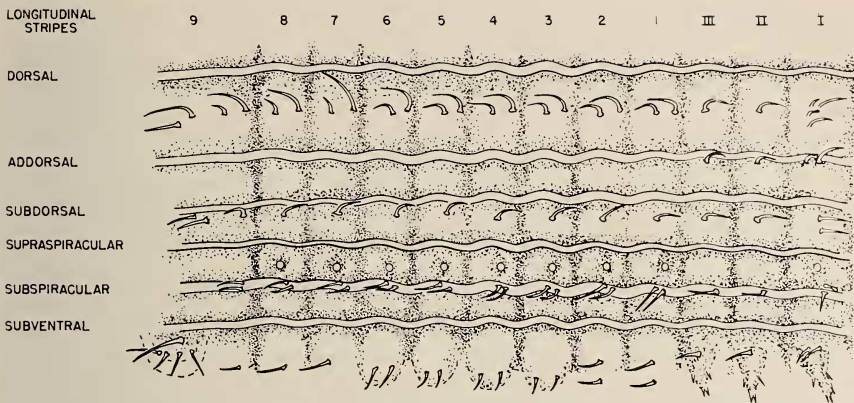 LONGITUDINAL
STRIPES
9 8 7 6 5 4 3 2 1 III II I
DORSAL
ADDORSAL
SUBDORSAL
SUPRASPIRACULAR
SUBSPIRACULAR
SUBVENTRAL